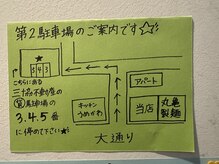 第2駐車場のご案内です☆
★
543
こちらにある
三七不動産の
貸駐車場の
3.4.5番
に停めて下さい★
キッチン
うめかわ
アパート
当店
丸亀
製麺
大通り